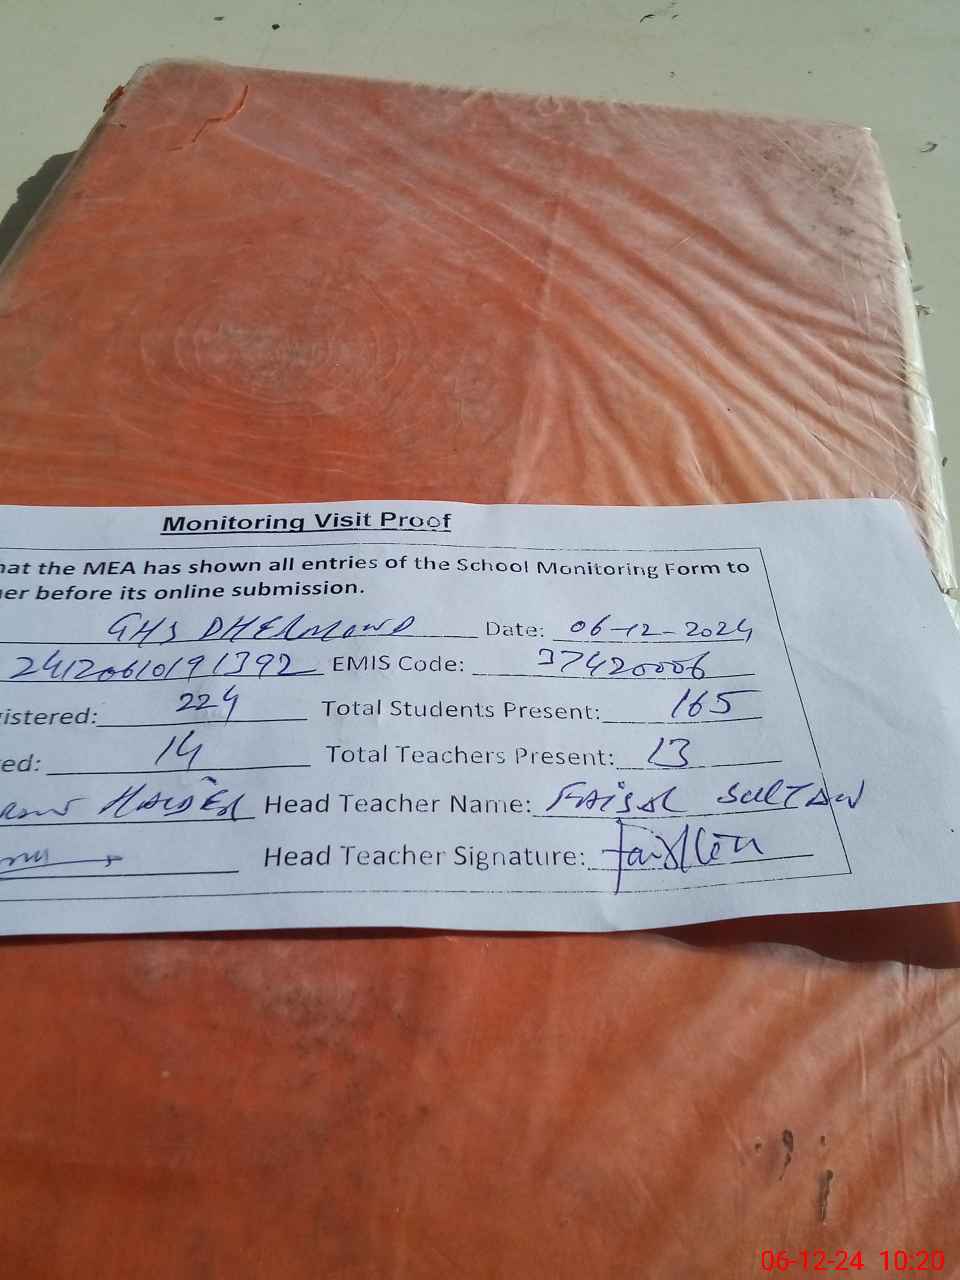 Monitoring Visit Proof
hat the MEA has shown all entries of the School Monitoring Form to
er before its online submission.
GHS DHERMOND Date: 06-12-2024
24120610191392 EMIS Code: 37420006
istered: 224 Total Students Present: 165
ed: 14 Total Teachers Present: 13
HAIDER Head Teacher Name: FAISAL SULTAN
Head Teacher Signature:
06-12-24 10:20